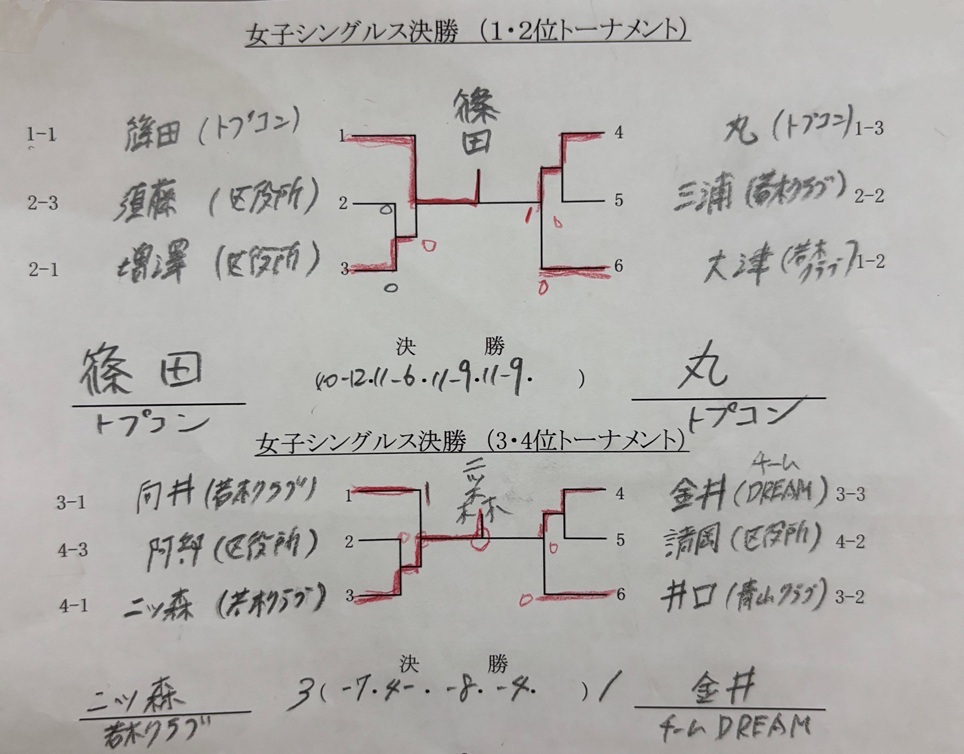 女子シングルス決勝 (1・2位トーナメント)
1-1 篠田 (トプコン) 1 篠田 4 丸 (トプコン) 1-3
2-3 須藤 (区役所) 2 0 5 三浦 (若木クラブ) 2-2
1 0
2-1 増澤 (区役所) 3 0 0 6 大津 (若木クラブ) 1-2
0
決 勝
篠田 (10-12.11-6.11-9.11-9. ) 丸
トプコン トプコン
女子シングルス決勝 (3・4位トーナメント)
3-1 向井 (若木クラブ) 1 1 二ッ森 4 金井 (チームDREAM) 3-3
4-3 阿部 (区役所) 2 0 0 5 清岡 (区役所) 4-2
4-1 二ッ森 (若木クラブ) 3 0 6 井口 (青山クラブ) 3-2
決 勝
二ッ森 3 ( -7.4-. -8. -4. ) 1 金井
若木クラブ チームDREAM